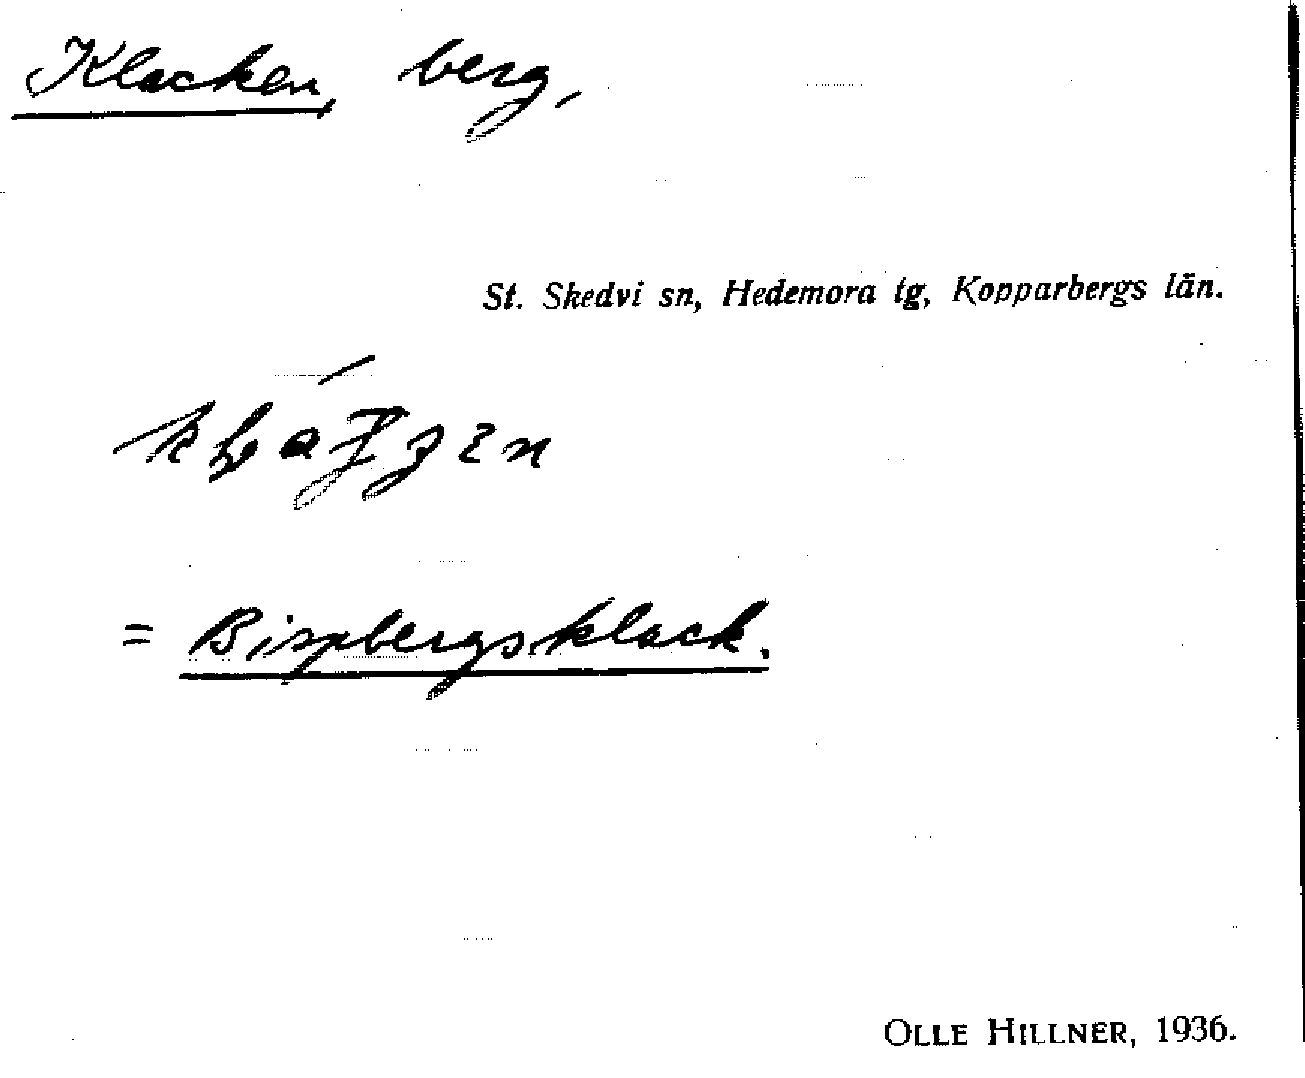 Klacken, berg,
St. Skedvi sn, Hedemora tg, Kopparbergs län.
= Bispbergsklack.
OLLE HILLNER, 1936.